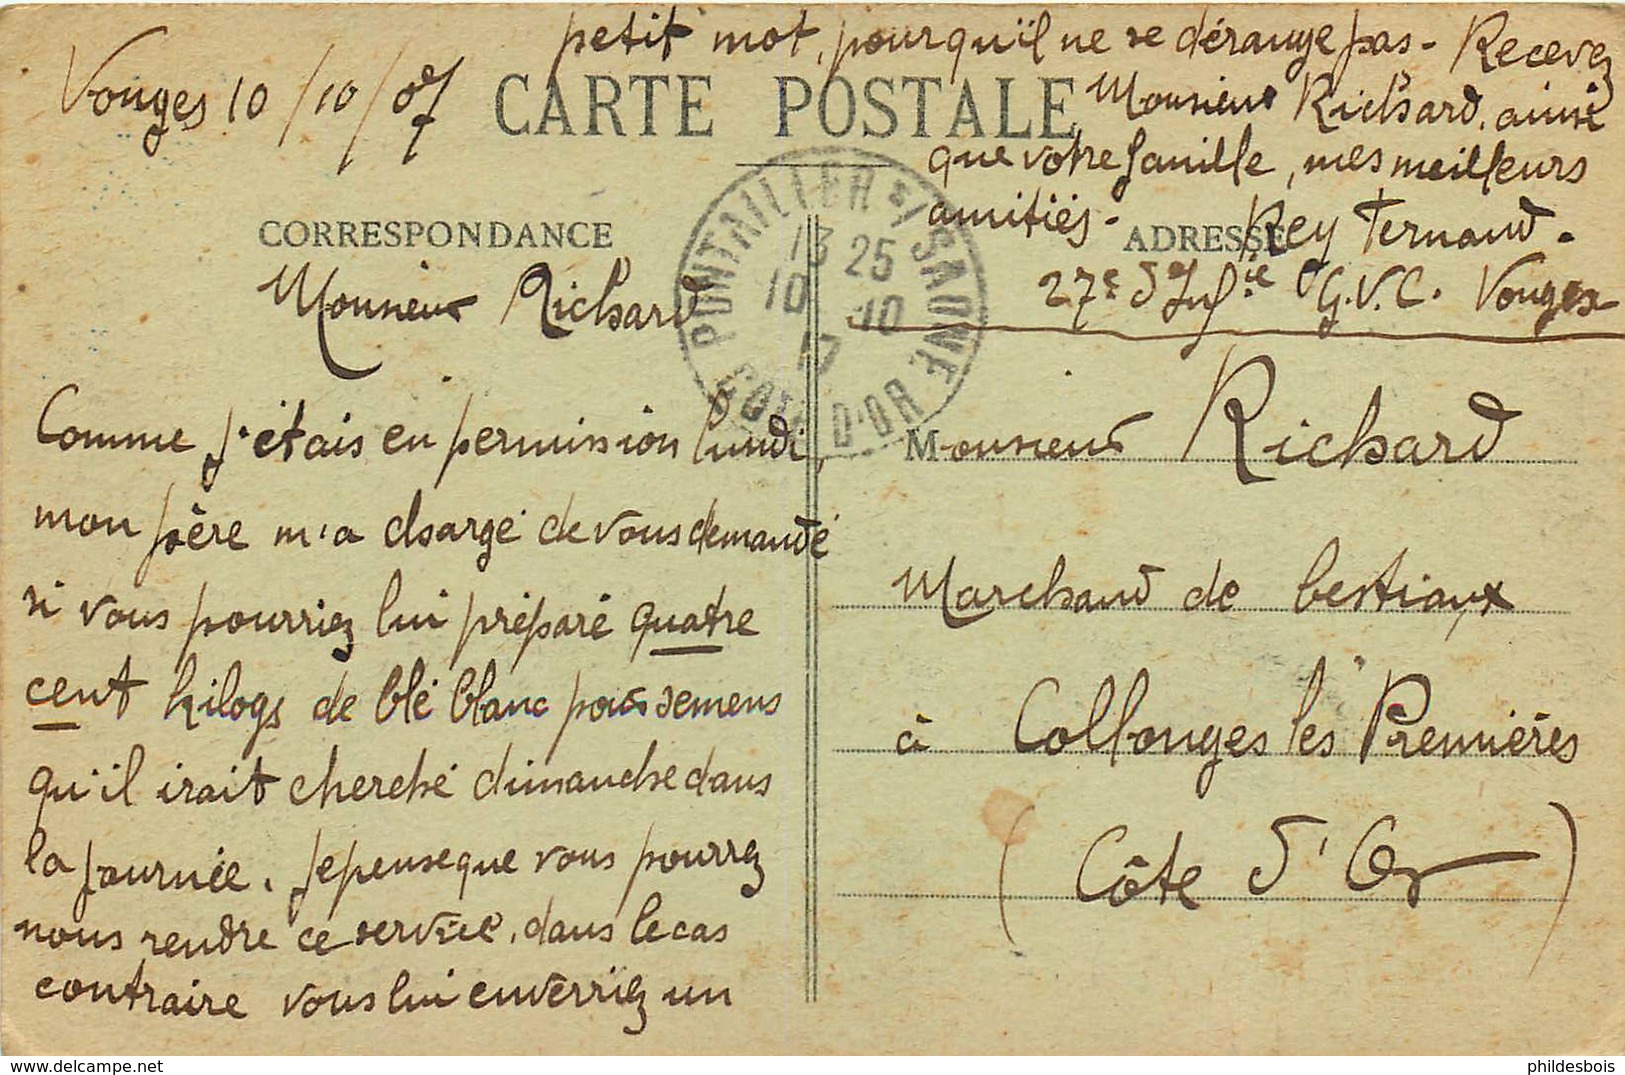 Vonges 10/10/07
CARTE POSTALE
CORRESPONDANCE
Monsieur Richard
Comme j'étais en permission lundi,
mon père m'a chargé de vous demandé
si vous pourriez lui préparé quatre
cent kilogs de blé blanc pour semens
qu'il irait cherché dimanche dans
la journée. Je pense que vous pourrez
nous rendre ce service, dans le cas
contraire vous lui enverriez un
petit mot, pour qu'il ne se dérange pas - Recevez
Monsieur Richard, ainsi
que votre famille, mes meilleurs
amitiés -
ADRESSE
Rey Fernand -
27e d'Infie G.V.C. Vonges
PONTAILLER s/ SAONE
13 25
10 -10
17
COTE D'OR
Monsieur Richard
Marchand de bestiaux
à Collonges les Premières
(Côte d'Or)
phildesbois